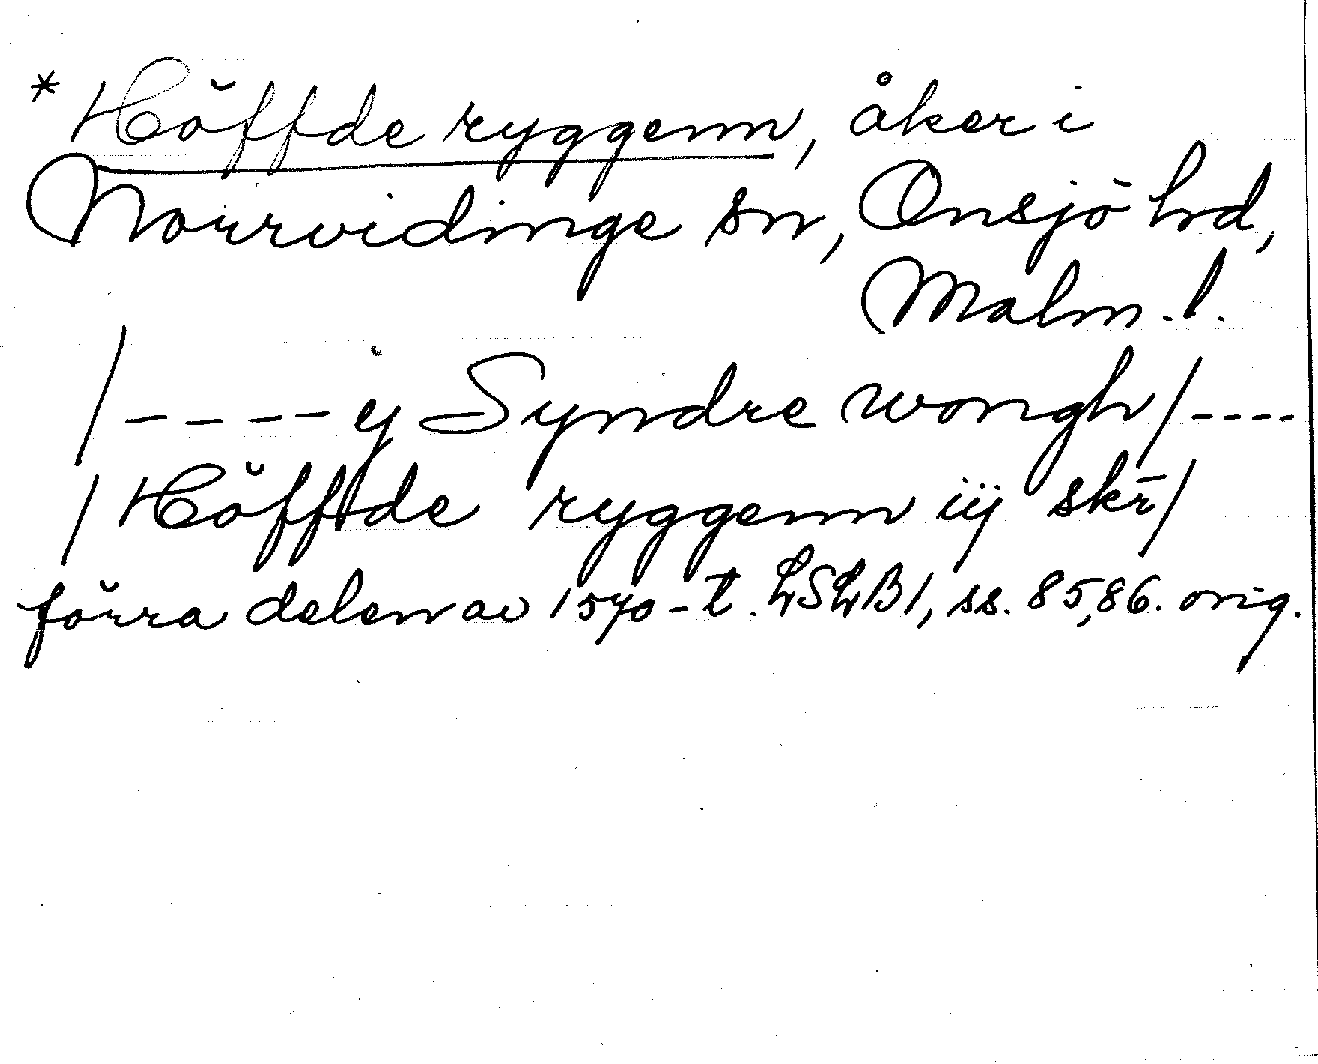 * Höffde ryggenn, åker i
Norrvidinge sn, Onsjö hrd,
Malm. l.
/---- y Syndre wongh/----
/Höffde ryggenn iij skr̄/
förra delen av 1570-t. LSLB1, ss. 85,86. orig.